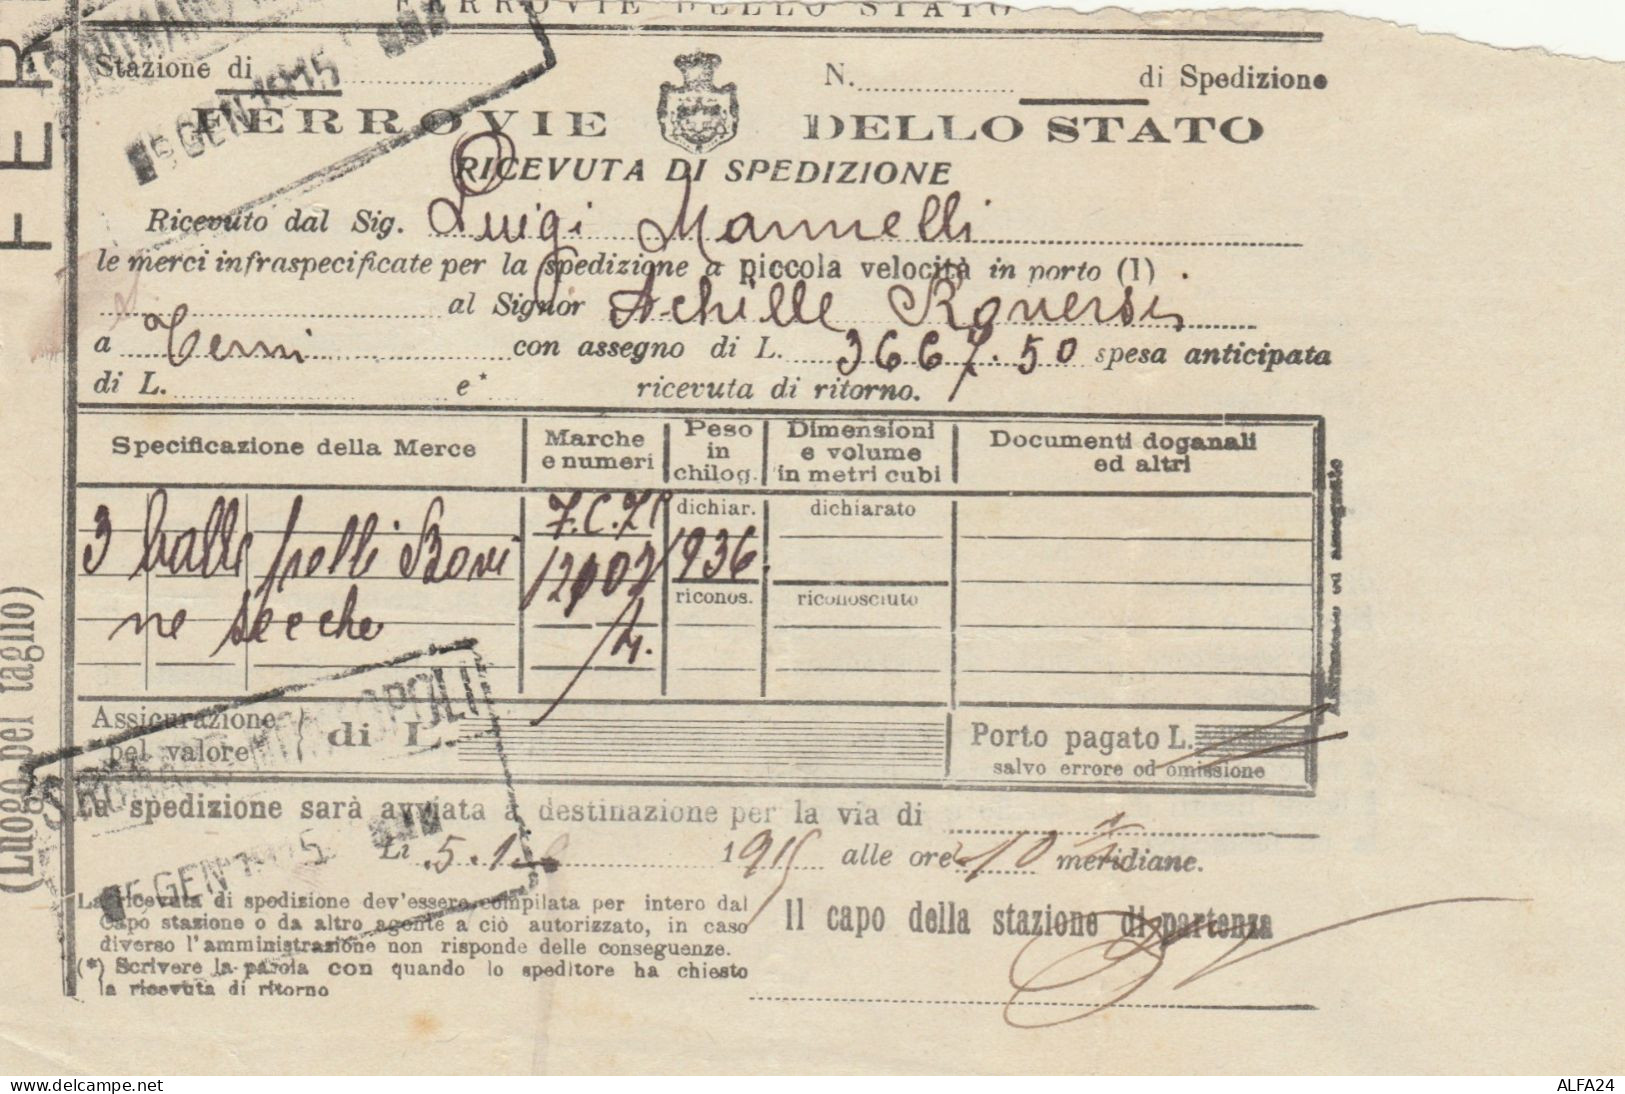 FERROVIE DELLO STATO
Stazione di
N. di Spedizione
5 GEN 1915
FERROVIE DELLO STATO
RICEVUTA DI SPEDIZIONE
Ricevuto dal Sig. Luigi Mannelli
le merci infraspecificate per la spedizione a piccola velocità in porto (1)
al Signor Achille Roversi
a Terni con assegno di L. 3667.50 spesa anticipata
di L. e* ricevuta di ritorno.
Specificazione della Merce
Marche e numeri
Peso in chilog.
Dimensioni e volume in metri cubi
Documenti doganali ed altri
dichiar.
dichiarato
3 balle pelli Bovi
936
ne secche
riconos.
riconosciuto
Assicurazione pel valore di L.
Porto pagato L.
salvo errore od omissione
La spedizione sarà avviata a destinazione per la via di
Li 5.1 1915 alle ore 10 meridiane.
5 GEN 1915
La ricevuta di spedizione dev'essere compilata per intero dal
Capo stazione o da altro agente a ciò autorizzato, in caso
diverso l'amministrazione non risponde delle conseguenze.
(*) Scrivere la parola con quando lo speditore ha chiesto
la ricevuta di ritorno
Il capo della stazione di partenza
(Luogo pel taglio)
FER
delcampe.net
ALFA24